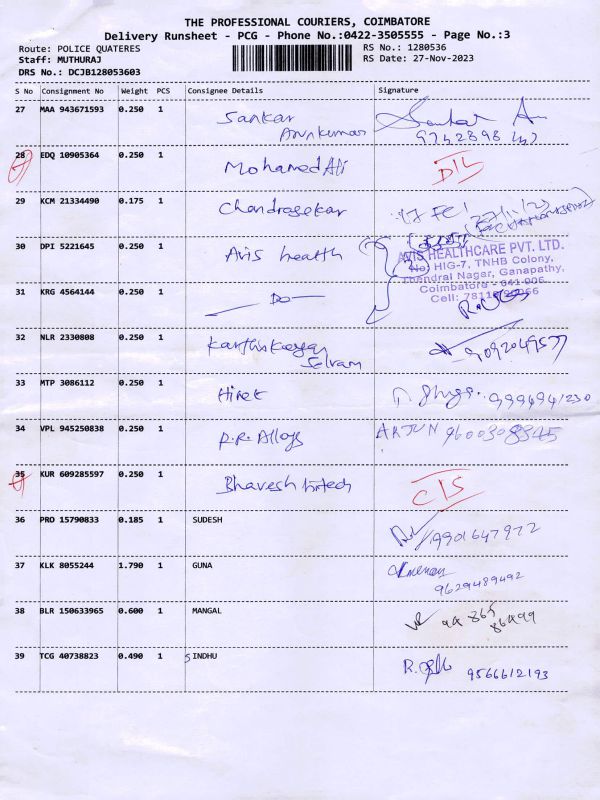 THE PROFESSIONAL COURIERS, COIMBATORE
Delivery Runsheet - PCG - Phone No.:0422-3505555 - Page No.:3
Route: POLICE QUATERES
RS No.: 1280536
Staff: MUTHURAJ
RS Date: 27-Nov-2023
DRS No.: DCJB128053603
S No Consignment No Weight PCS Consignee Details Signature
27 MAA 943671593 0.250 1 Sankar
Arunkumar
28 EDQ 10905364 0.250 1 Mohamed Ali DIL
29 KCM 21334490 0.175 1 Chandrasekar
30 DPI 5221645 0.250 1 Avis health
AVIS HEALTHCARE PVT. LTD.
No: HIG-7, TNHB Colony,
Nagar, Ganapathy,
Coimbatore - 641 006.
Cell:
31 KRG 4564144 0.250 1 — Do —
32 NLR 2330808 0.250 1 Karthikeyan
Selvam
33 MTP 3086112 0.250 1 Hirek
34 VPL 945250838 0.250 1 R.R. Alloys ARJUN
35 KUR 609285597 0.250 1 Bhavesh
36 PRO 15790833 0.185 1 SUDESH 9901647972
37 KLK 8055244 1.790 1 GUNA 9629489492
38 BLR 150633965 0.600 1 MANGAL
39 TCG 40738823 0.490 1 SINDHU 9566612193